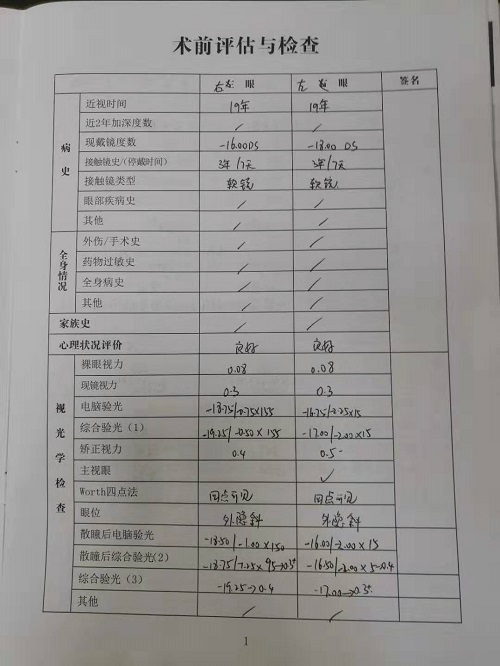 术前评估与检查
右 眼 左 眼 签名
病史
近视时间 19年 19年
近2年加深度数 / /
现戴镜度数 -16.00DS -18.00DS
接触镜史/(停戴时间) 3年/7天 3年/7天
接触镜类型 软镜 软镜
眼部疾病史 / /
其他 / /
全身情况
外伤/手术史 / /
药物过敏史 / /
全身病史 / /
其他 / /
家族史 / /
心理状况评价 良好 良好
视光学检查
裸眼视力 0.08 0.08
现镜视力 0.3 0.3
电脑验光 -18.75/-0.75×155 -16.75/-2.25×15
综合验光（1） -19.25/-0.50×155 -17.00/-2.00×15
矫正视力 0.4 0.5-
主视眼 ✓
Worth四点法 四点可见 四点可见
眼位 外隐斜 外隐斜
散瞳后电脑验光 -18.50/-1.00×150 -16.00/-2.00×15
散瞳后综合验光(2) -18.75 -16.50/-2.00×5→0.4
综合验光（3） -19.25→0.4 -17.00→0.3+
其他 / /
1